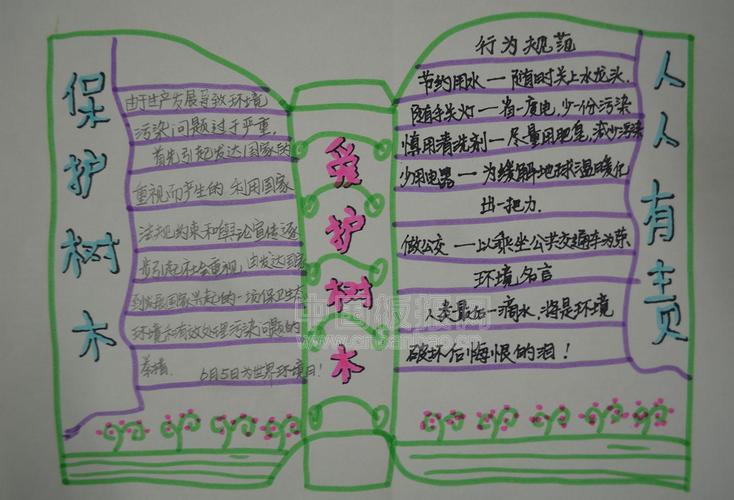 保护树木
由于生产发展导致环境
污染问题过于严重,
首先引起发达国家的
重视而产生的 利用国家
法规约束和舆论宣传逐
步引起社会重视,由发达国家
到发展国家兴起的一项保卫生态
环境和有效处理污染问题的
举措. 6月5日为世界环境日!
爱护树木
行为规范
节约用水——随时关上水龙头.
随手关灯——省一度电,少一份污染
慎用清洗剂——尽量用肥皂,减少污染
少用电器——为缓解地球温暖化
出一把力.
做公交——以乘坐公共交通车为荣.
环境名言
人类最后一滴水,将是环境
破坏后悔恨的泪!
人人有责
中国板报网
www.cnbanbao.cn